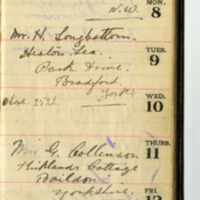 N.W.
MON.
8
Mr. H. Longbottom.
Heaton Lea.
TUES.
9
Park Drive.
Bradford.
Yorks
WED.
10
THURS.
11
Miss G. Collenson
Kirklands Cottage
Baildon
Yorkshire.
FRI.
12